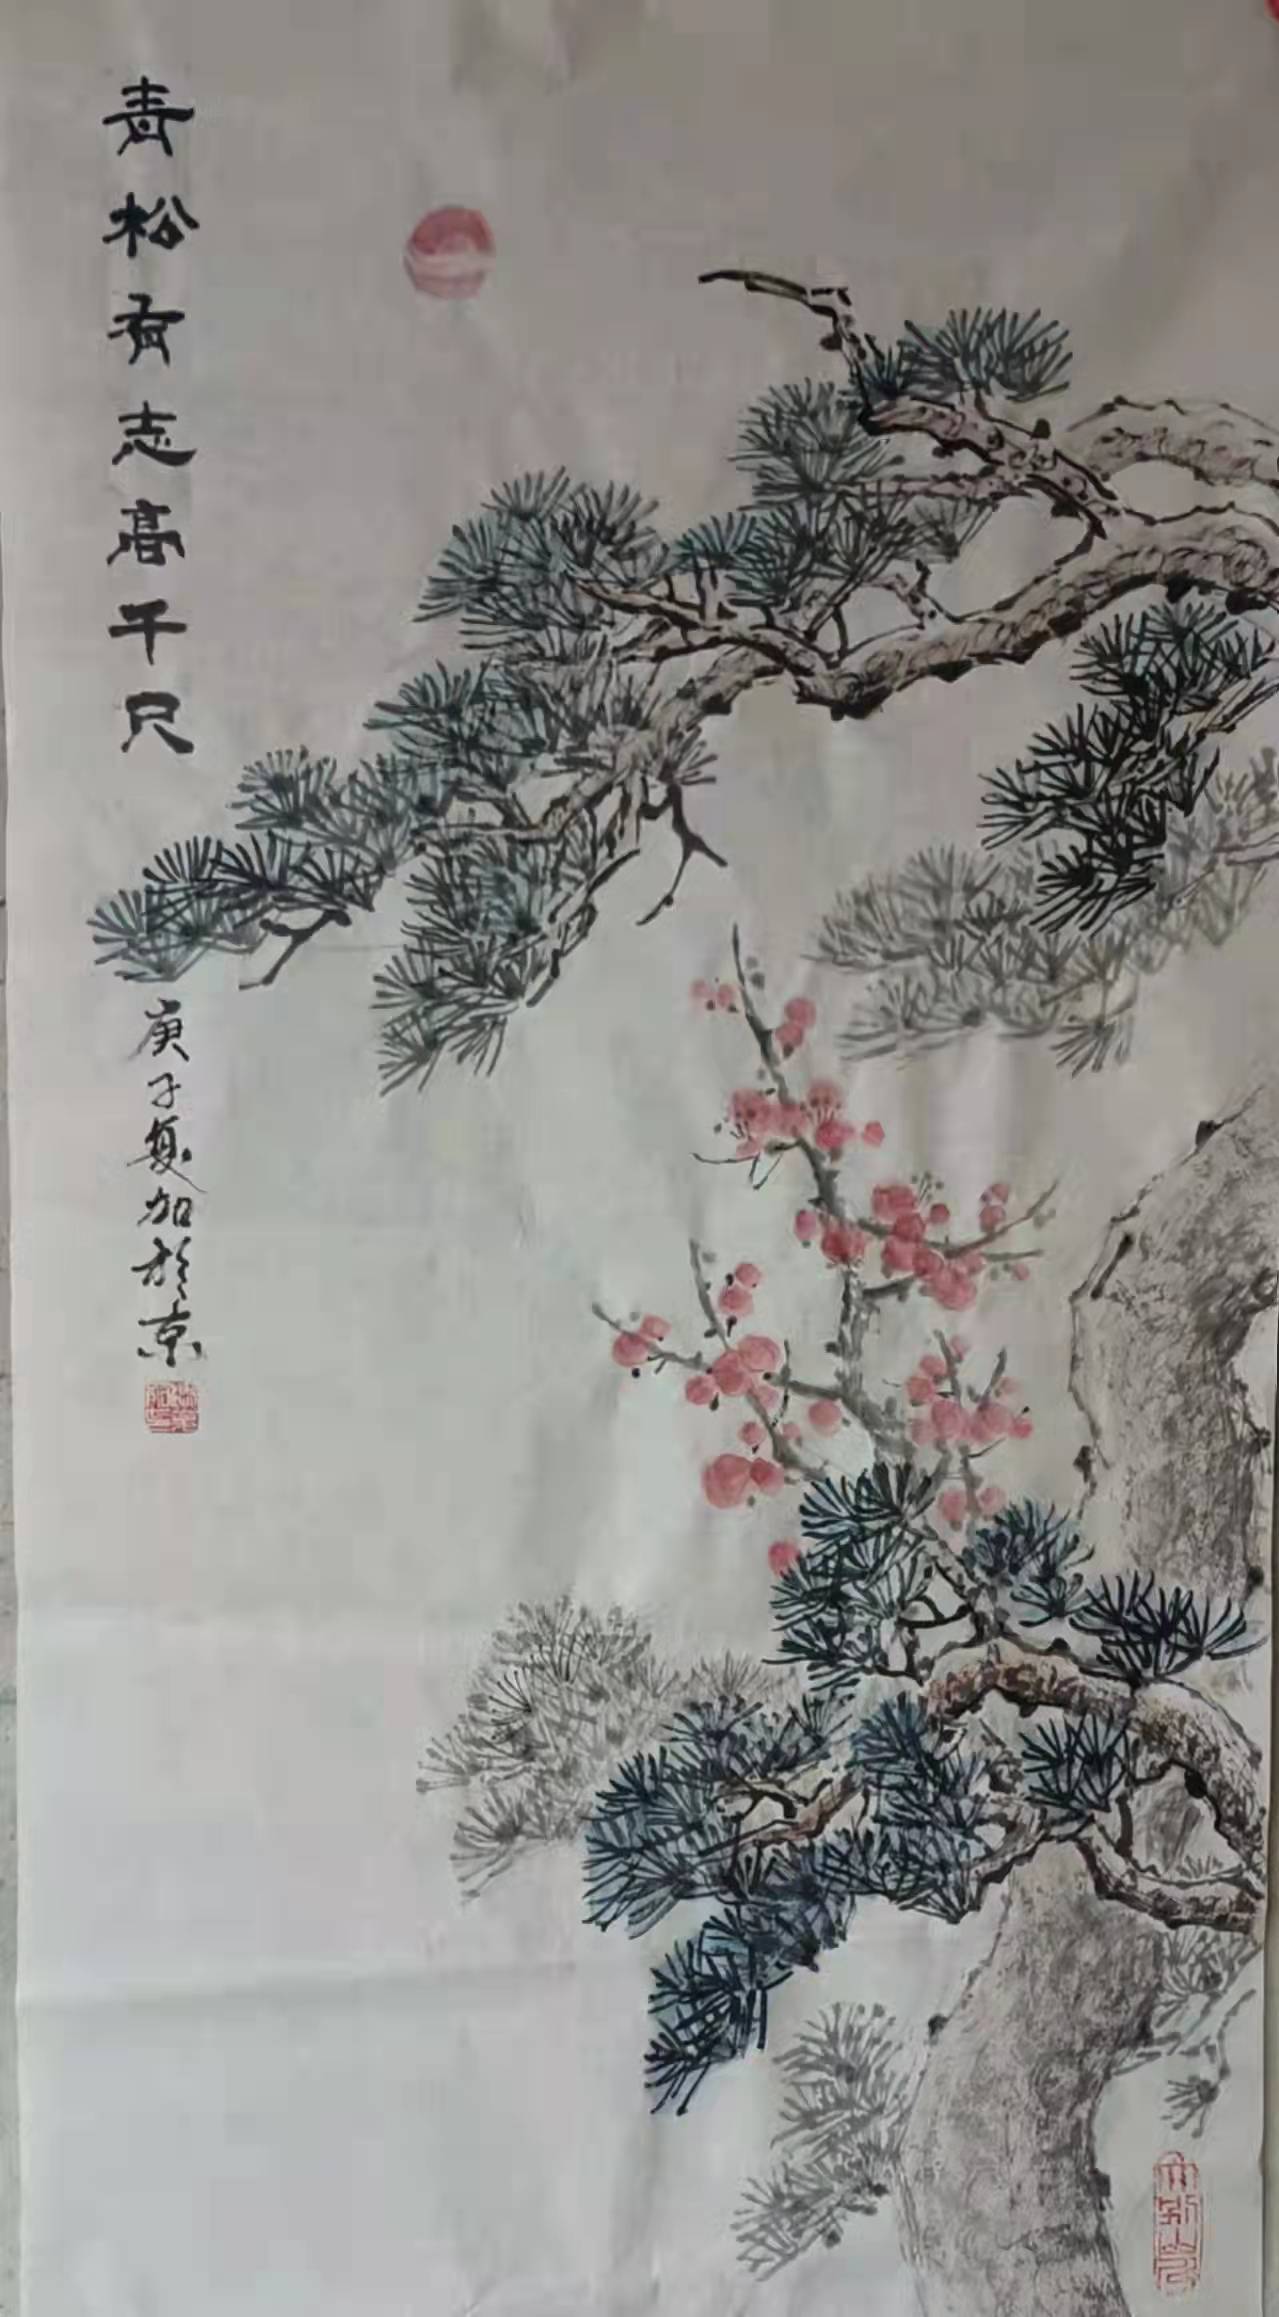 青松有志高千尺
庚子夏加於京